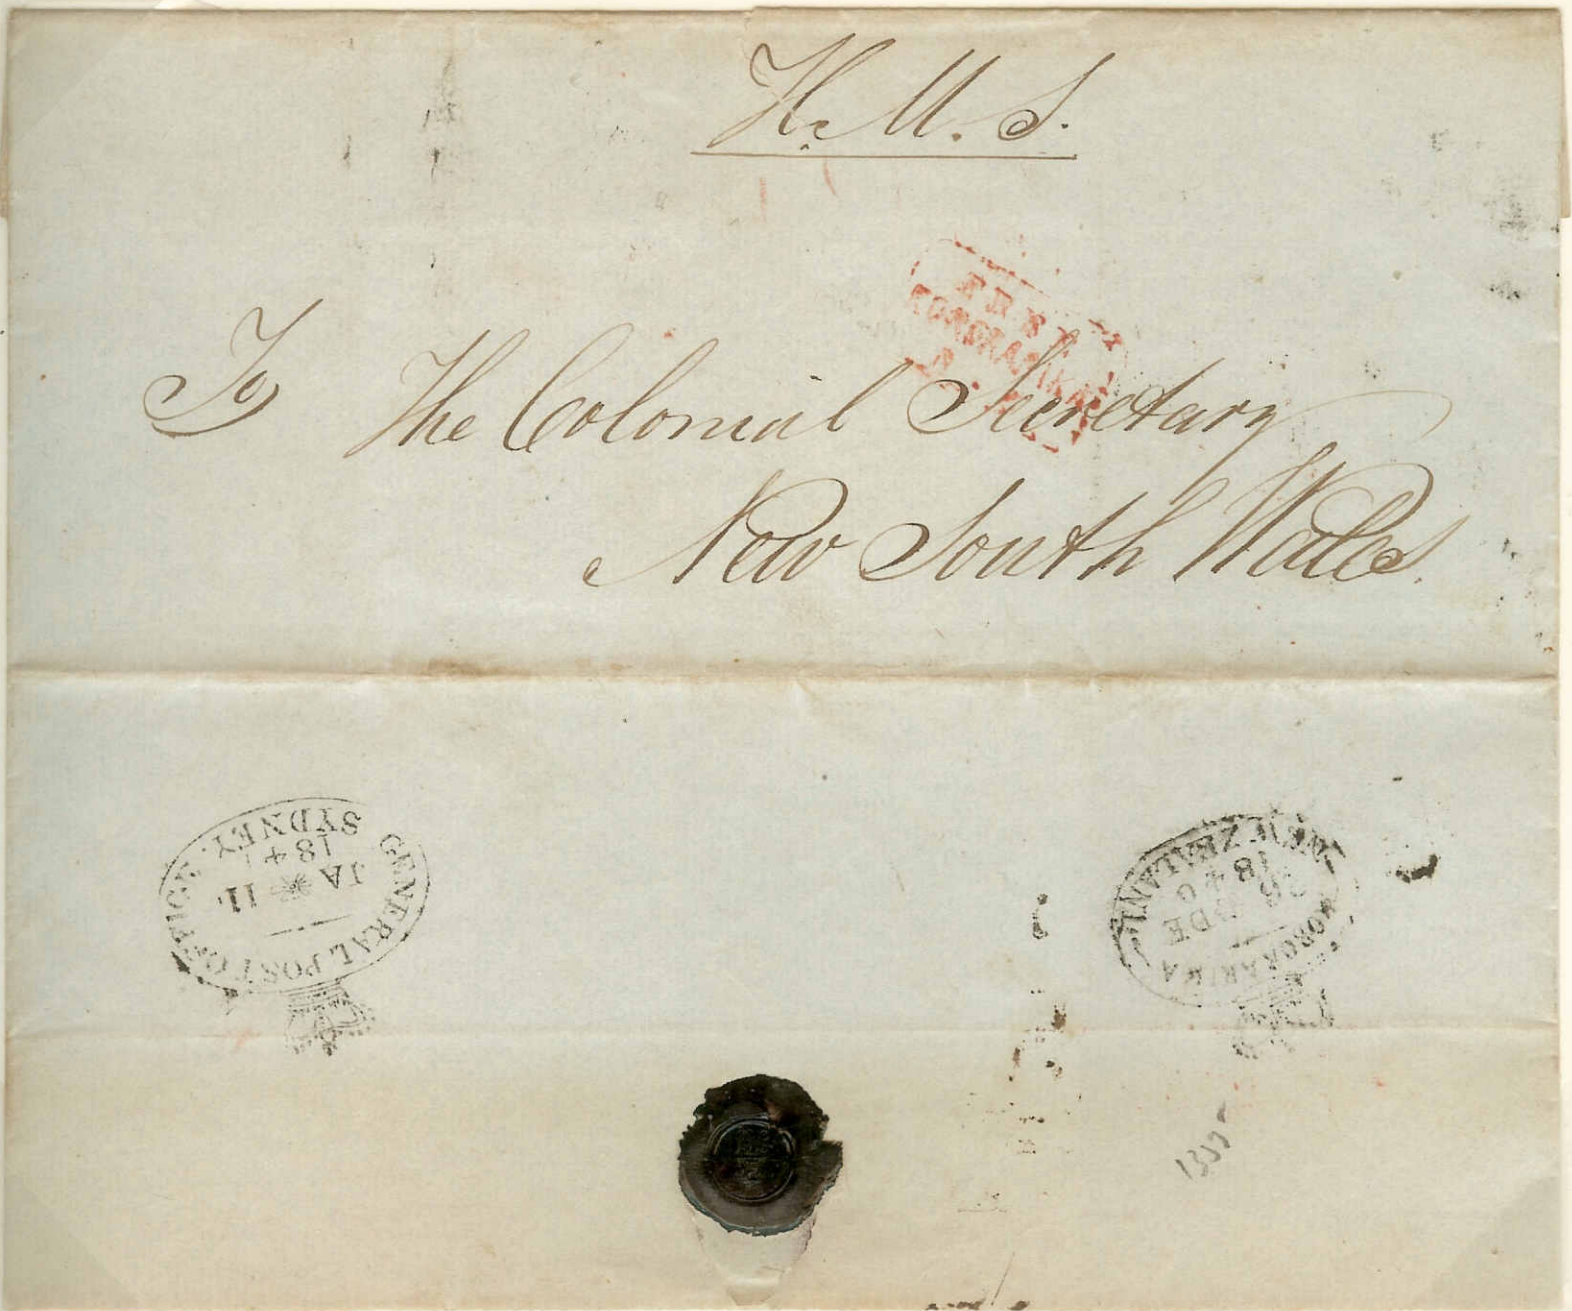 H. M. S.
FREE
KORORARIKA
To The Colonial Secretary
New South Wales.
GENERAL POST OFFICE.
JA 11.
1841
SYDNEY.
KORORARIKA
DE
1840
NEW ZEALAND